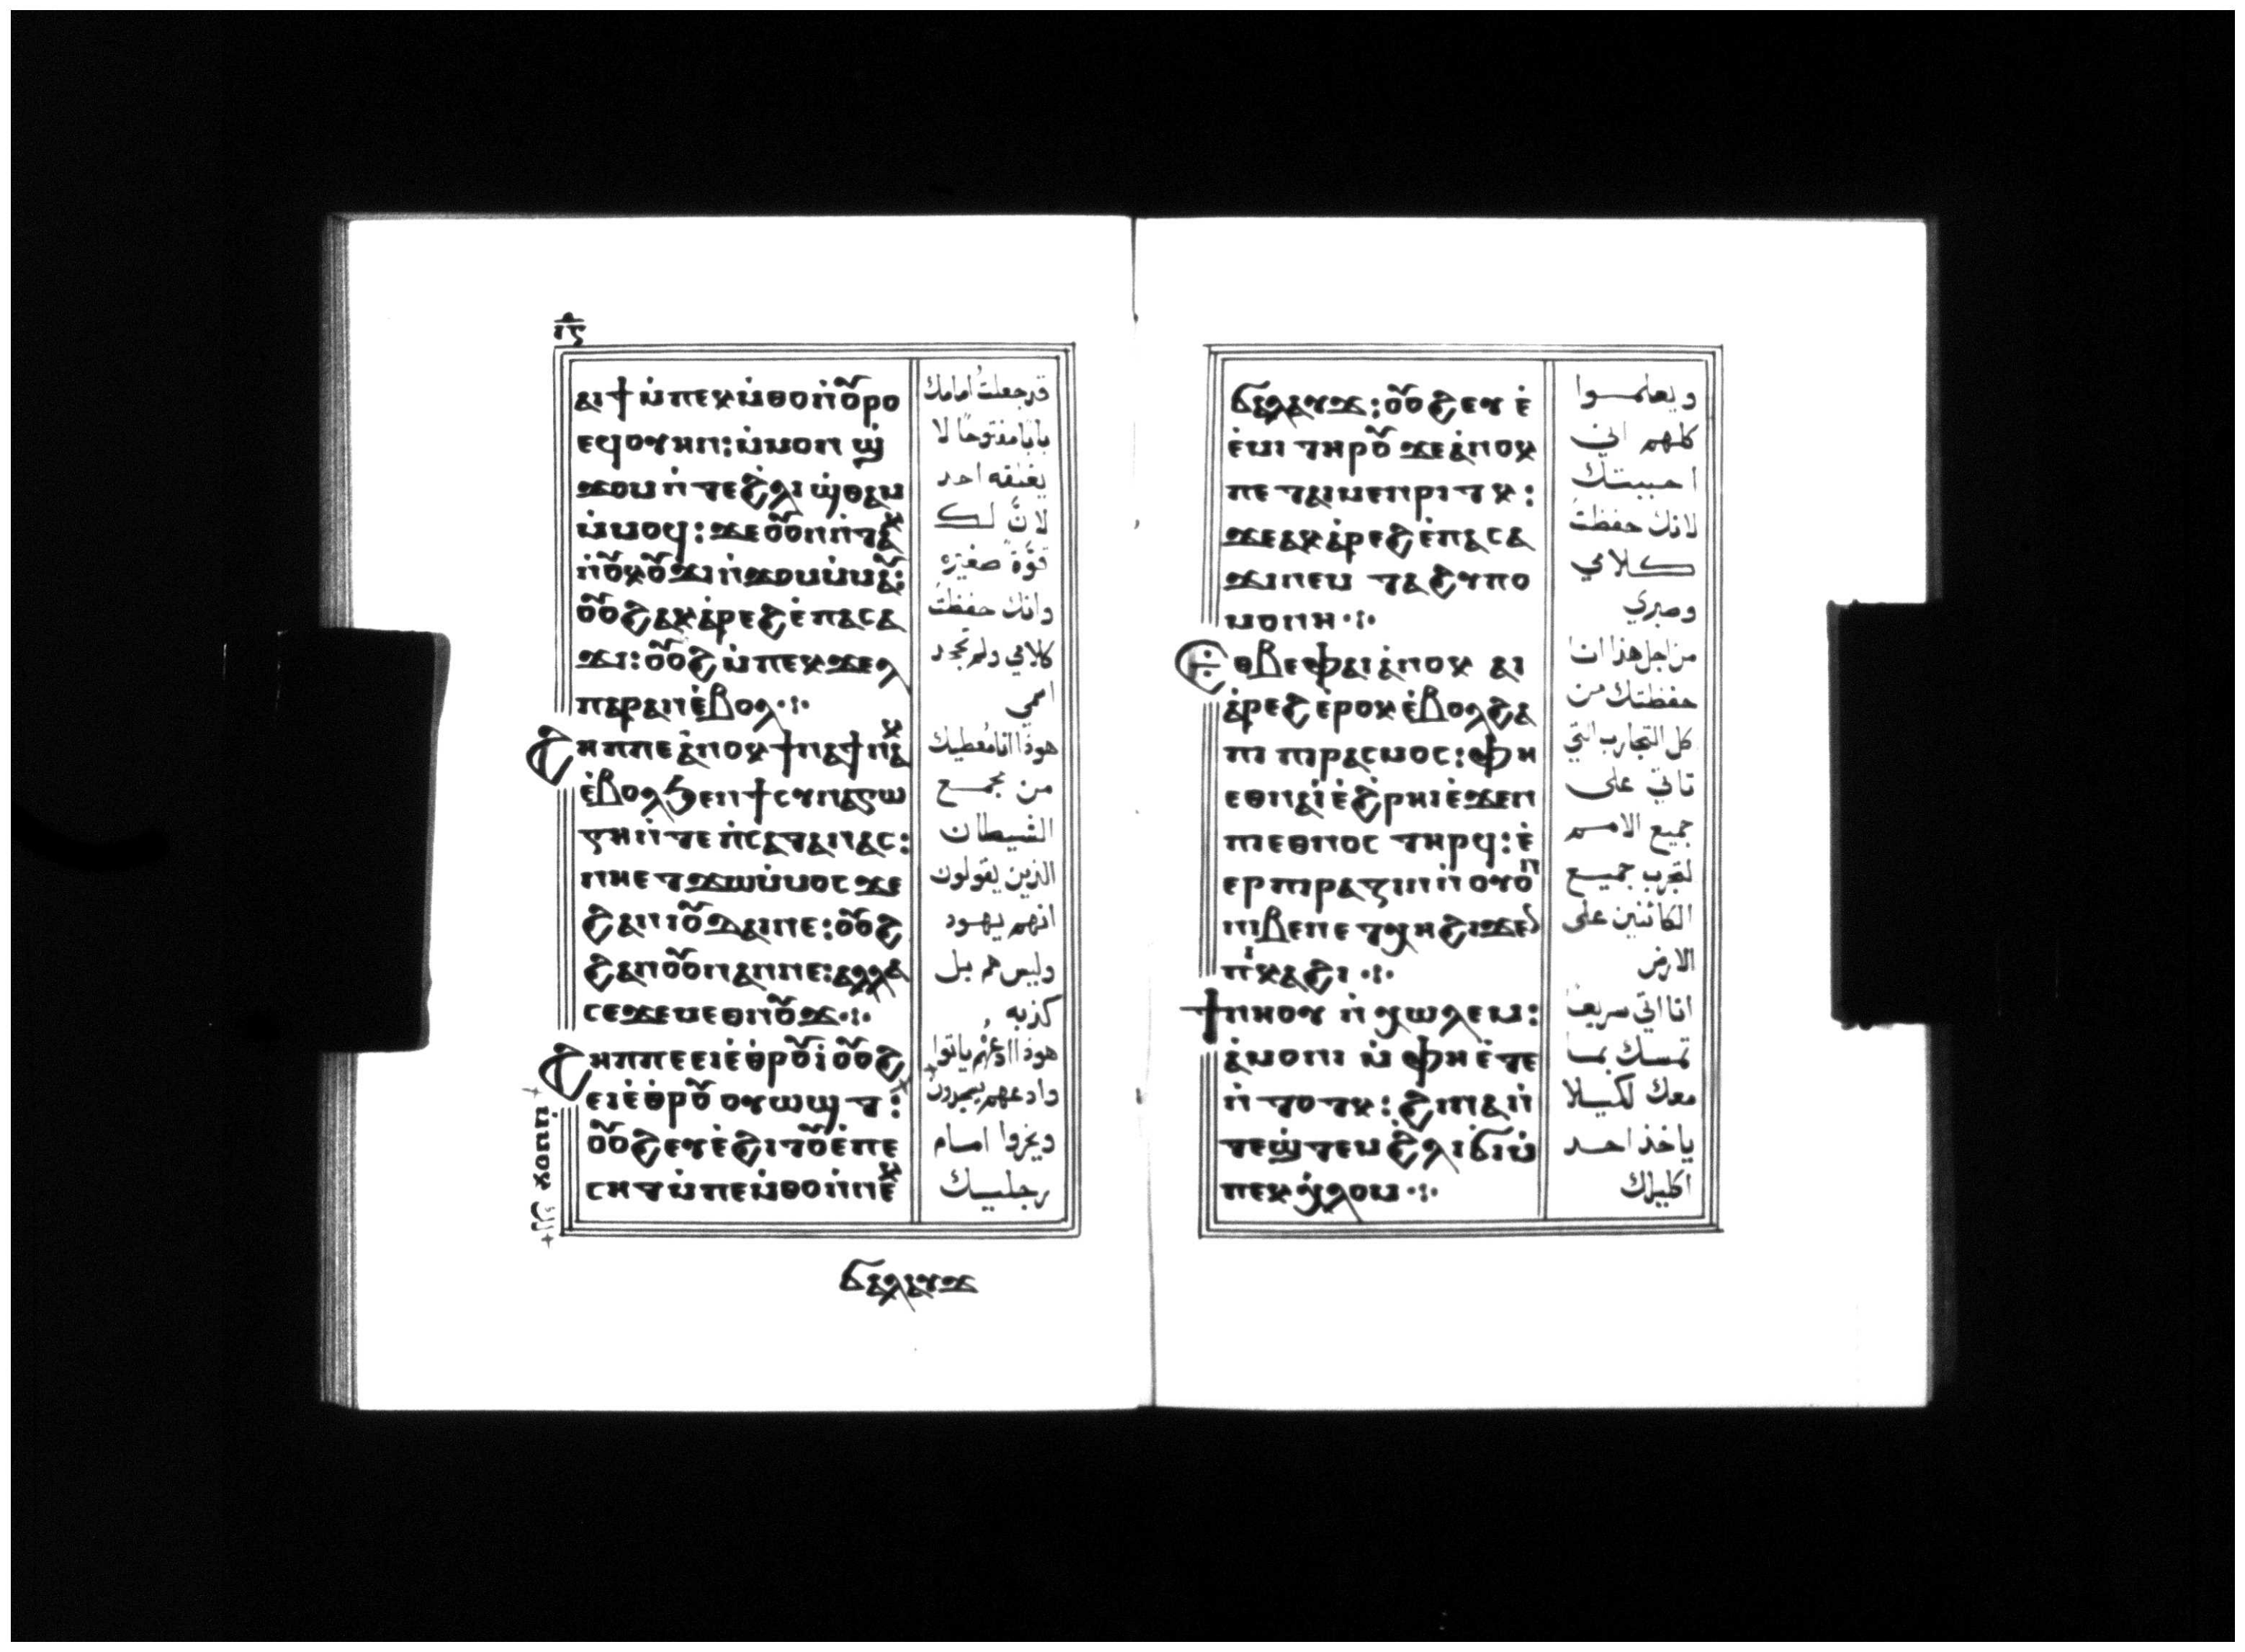 ⲓⲋ
ⲁⲓϯ ⲙ̀ⲡⲉⲕⲙ̀ⲑⲟⲛ̀ⲟ̃ⲣⲟ
ⲉϥⲟⲩⲏⲛ:ⲙ̀ⲙⲟⲛ ϣ̀
ϫⲟⲙ ⲛ̀ⲧⲉϩ̀ⲗⲓ ϣ̀ⲑⲁⲙ
ⲙ̀ⲙⲟϥ:ϫⲉⲟ̃ⲟⲛⲛ̀ⲧⲁⲕ
ⲛ̀ⲟ̃ⲕⲟ̃ϫⲓⲛ̀ϫⲟⲙⲙ̀ⲙⲁ̃:
ⲟ̃ⲟϩⲁⲕⲁ̀ⲣⲉϩⲉ̀ⲡⲁⲥⲁ
ϫⲓ:ⲟ̃ⲟϩ ⲙ̀ⲡⲉⲕϫⲉⲗ
ⲡⲁⲣⲁⲛⲉ̀ⲃⲟⲗ·:·
ϩⲏⲡⲡⲉⲁ̀ⲛⲟⲕϯⲛⲁϯⲛⲁⲕ
ⲉ̀ⲃⲟⲗϧⲉⲛϯⲥⲩⲛⲁⲅⲱ
ⲅⲏⲛ̀ⲧⲉⲡ̀ⲥⲁⲧⲁⲛⲁⲥ:
ⲛⲏⲉⲧϫⲱⲙ̀ⲙⲟⲥ ϫⲉ
ϩⲁⲛⲓⲟ̃ⲇⲁⲓⲛⲉ:ⲟ̃ⲟϩ
ϩⲁⲛⲟ̃ⲟⲛⲁⲛⲛⲉ:ⲁⲗⲗⲁ
ⲥⲉϫⲉⲙⲉⲑⲛⲟ̃ϫ·:·
ϩⲏⲡⲡⲉⲉⲓⲉ̀ⲑⲣⲟ̃ⲓ̀ⲟ̃ⲟϩ
ⲉⲓⲉ̀ⲑⲣⲟ̃ ⲟⲩⲱϣⲧ:
ⲟ̃ⲟϩⲉⲩⲉ̀ϩⲓⲧⲟ̃ⲉ̀ⲡⲉ
ⲥⲏⲧⲙ̀ⲡⲉⲙ̀ⲑⲟⲛ̀ⲛⲉⲕ
ⲙ̀ⲙⲟⲕ لك
قد جعلتُ امامك
بابًا مفتوحًا لا
يغلقه احد
لانَّ لك
قوَّة صغيره
وانك حفظتَ
كلامي ولم تجحد
اسمي
هوذا انا مُعطيك
من مجمع
الشيطان
الذين يقولون
انهم يهود
وليس هم بل
كذبه
هوذا ادعهُم ياتوا
وادعهم يسجدون
ويخروا امام
رجليك
ϭⲁⲗⲁⲩϫ
ϭⲁⲗⲁⲩϫ:ⲟ̃ⲟϩⲉⲩ ⲉ̀
ⲉ̀ⲙⲓ ⲧⲏⲣⲟ̃ ϫⲉⲁ̀ⲛⲟⲕ
ⲡⲉⲧⲁⲓⲙⲉⲛⲣⲓⲧⲕ:
ϫⲉⲁⲕⲁ̀ⲣⲉϩⲉ̀ⲡⲁⲥⲁ
ϫⲓⲛⲉⲙ ⲧⲁϩⲩⲡⲟ
ⲙⲟⲛⲏ·:·
ⲉⲑⲃⲉⲫⲁⲓⲁ̀ⲛⲟⲕ ⲁⲓ
ⲁ̀ⲣⲉϩⲉⲣⲟⲕⲉ̀ⲃⲟⲗϩⲁ
ⲡⲓ ⲡⲓⲣⲁⲥⲙⲟⲥ:ⲫⲏ
ⲉⲑⲛⲁⲓ̀ⲉ̀ϩⲣⲏⲓⲉ̀ϫⲉⲛ
ⲡⲓⲉⲑⲛⲟⲥ ⲧⲏⲣϥ:ⲉ̀
ⲉⲣⲡⲓⲣⲁⲍⲓⲛⲛ̀ⲟⲩⲟⲛ
ⲛⲓⲃⲉⲛⲉⲧϣⲏϩⲓϫⲉⲛ
ⲡ̀ⲕⲁϩⲓ·:·
ϯⲛⲏⲟⲩ ⲛ̀ⲭⲱⲗⲉⲙ:
ⲁ̀ⲙⲟⲛⲓ ⲙ̀ⲫⲏⲉ̀ⲧⲉ
ⲛ̀ⲧⲟⲧⲕ:ϩⲓⲛⲁⲛ̀
ⲧⲉϣ̀ⲧⲉⲙϩ̀ⲗⲓϭⲓⲙ̀
ⲡⲉⲕⲭ̀ⲗⲟⲙ·:·
ويعلمــوا
كلهم انى
احببتك
لانك حفظتَ
كلامي
وصبري
من اجل هذا انا
حفظتك من
كل التجارب التي
تاتي على
جميع الامم
لتجرب جميع
الكائنين على
الارض
انا اتي سريعًا
تمسك بما
معك لكيلا
ياخذ احد
اكليلك